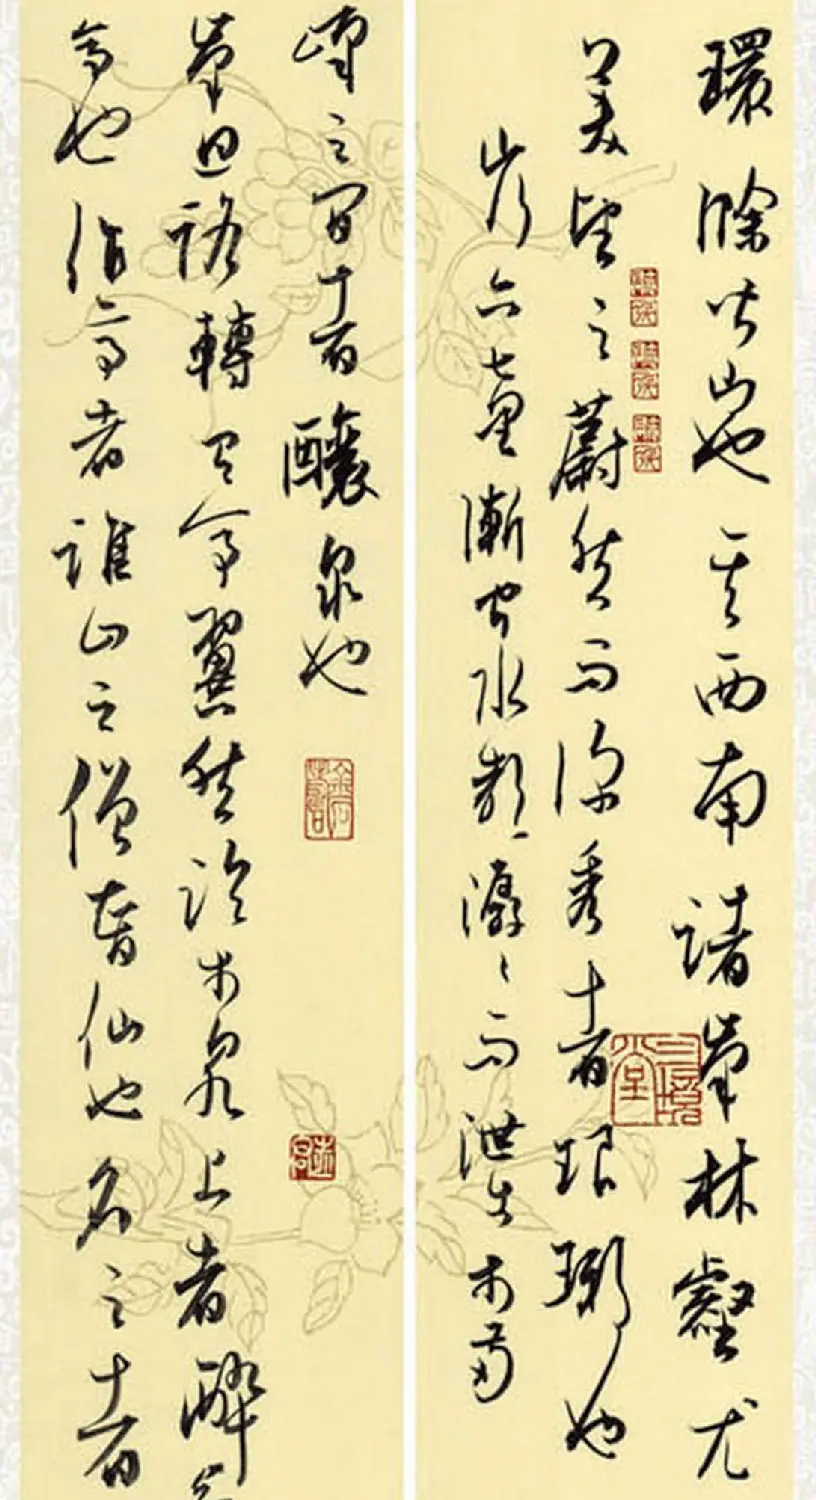 環滁皆山也其西南諸峯林壑尤
美望之蔚然而深秀者琅琊也
山行六七里漸聞水聲潺〻而泄出於兩
峰之間者釀泉也
峯回路轉有亭翼然臨於泉上者醉翁
亭也作亭者誰山之僧智仙也名之者